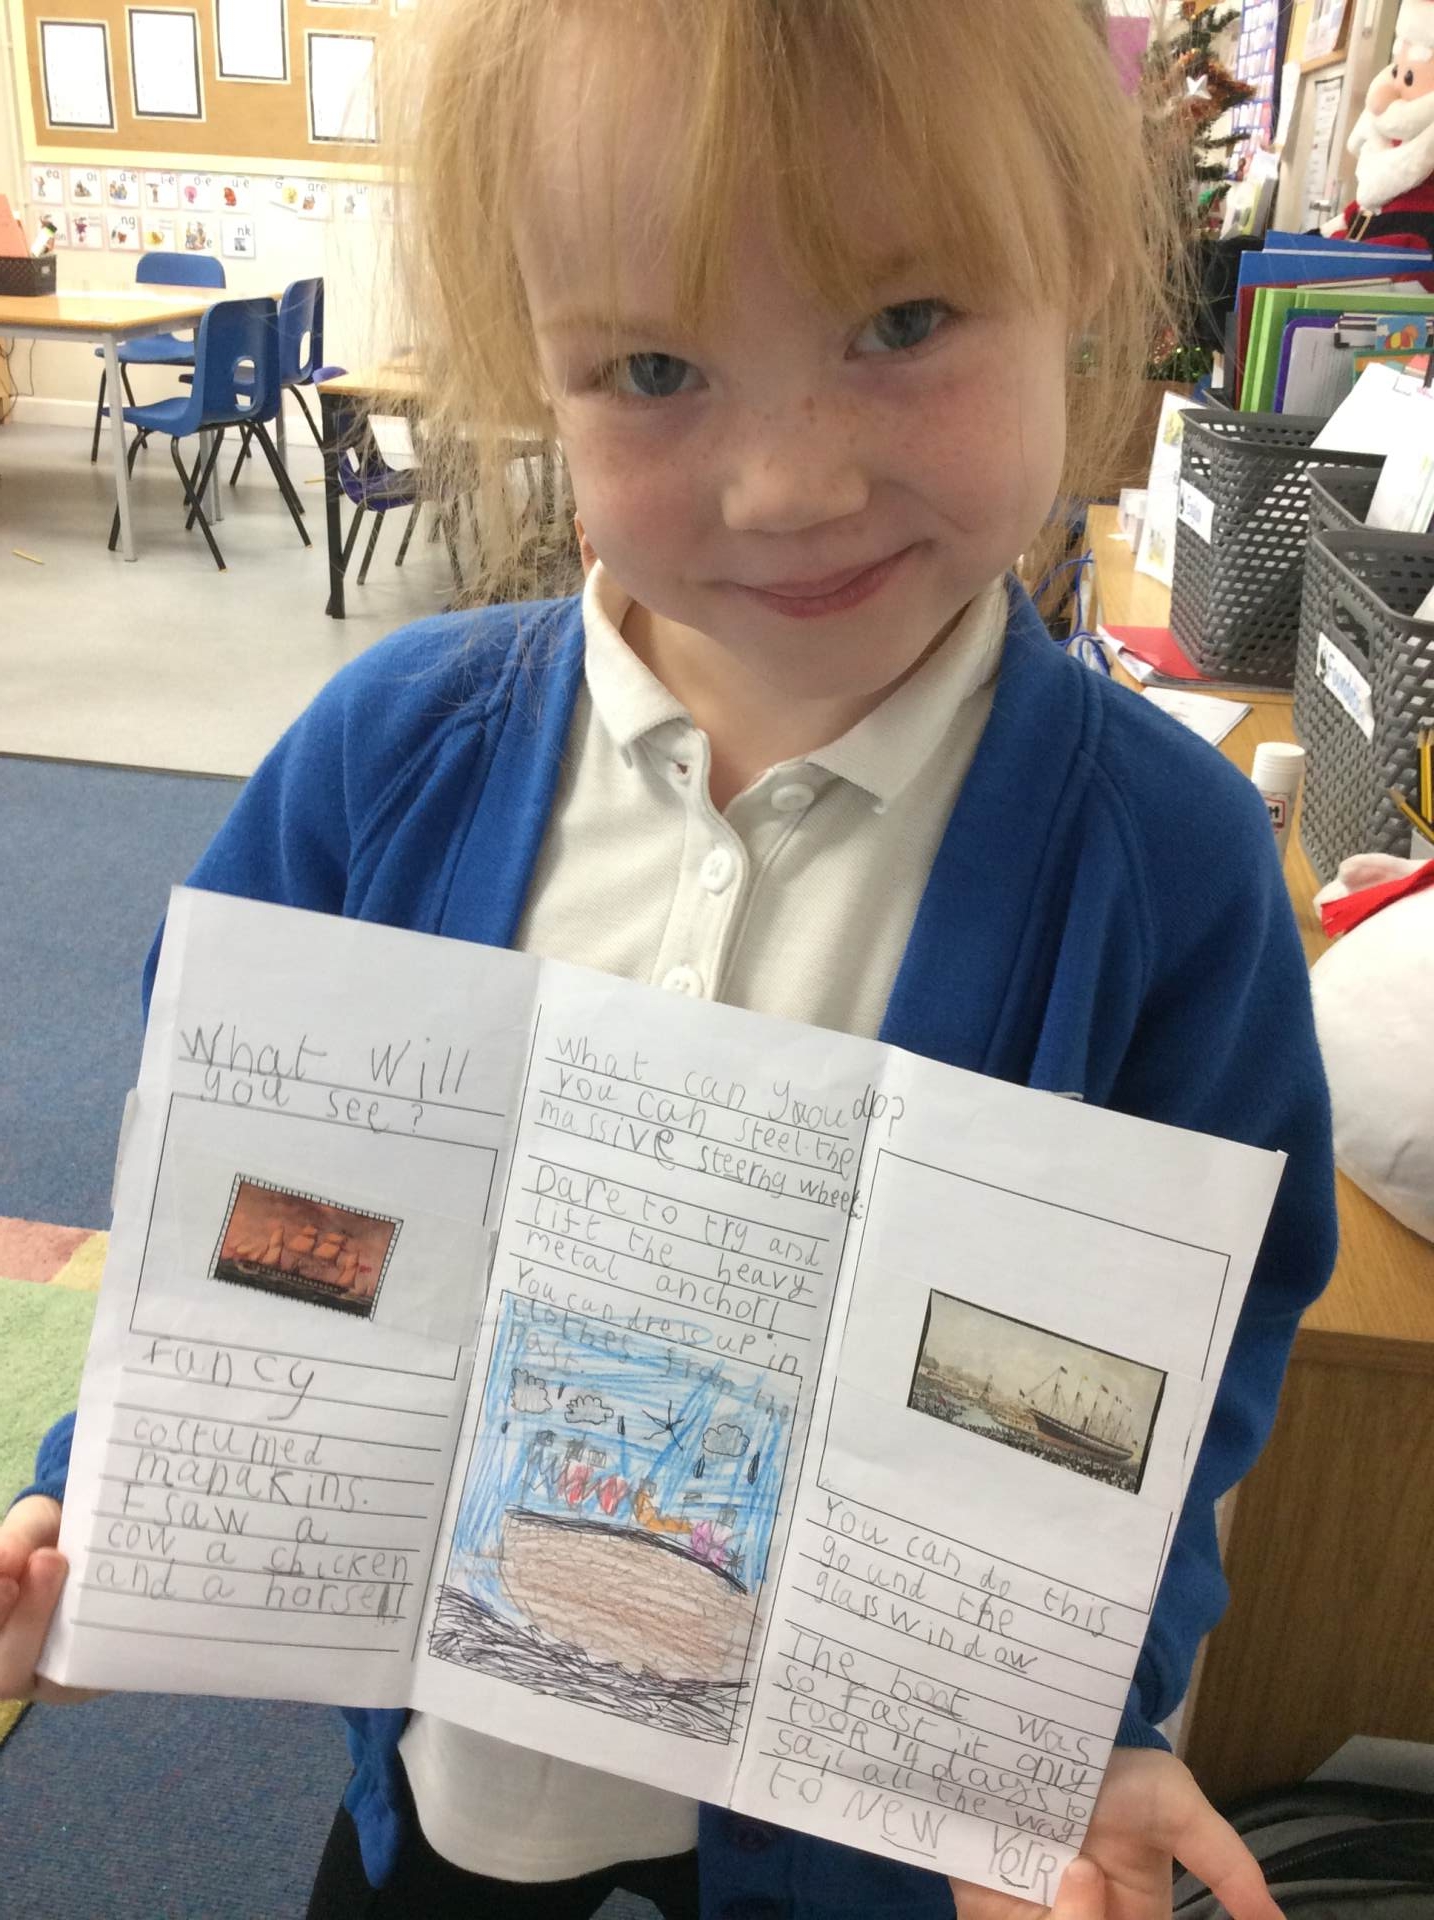 What will
you see?
Fancy
costumed
manakins.
I saw a
cow a chicken
and a horse!!
What can you do?
You can steel the
massive steerng wheel
Dare to try and
lift the heavy
metal anchor!
You can dress up in
clothes from the
past.
You can do this
go und the
glass window
The boat was
so fast it only
took 14 days to
sail all the way
to New York
ea
oi
a-e
i-e
o-e
u-e
are
ur
ng
nk
English